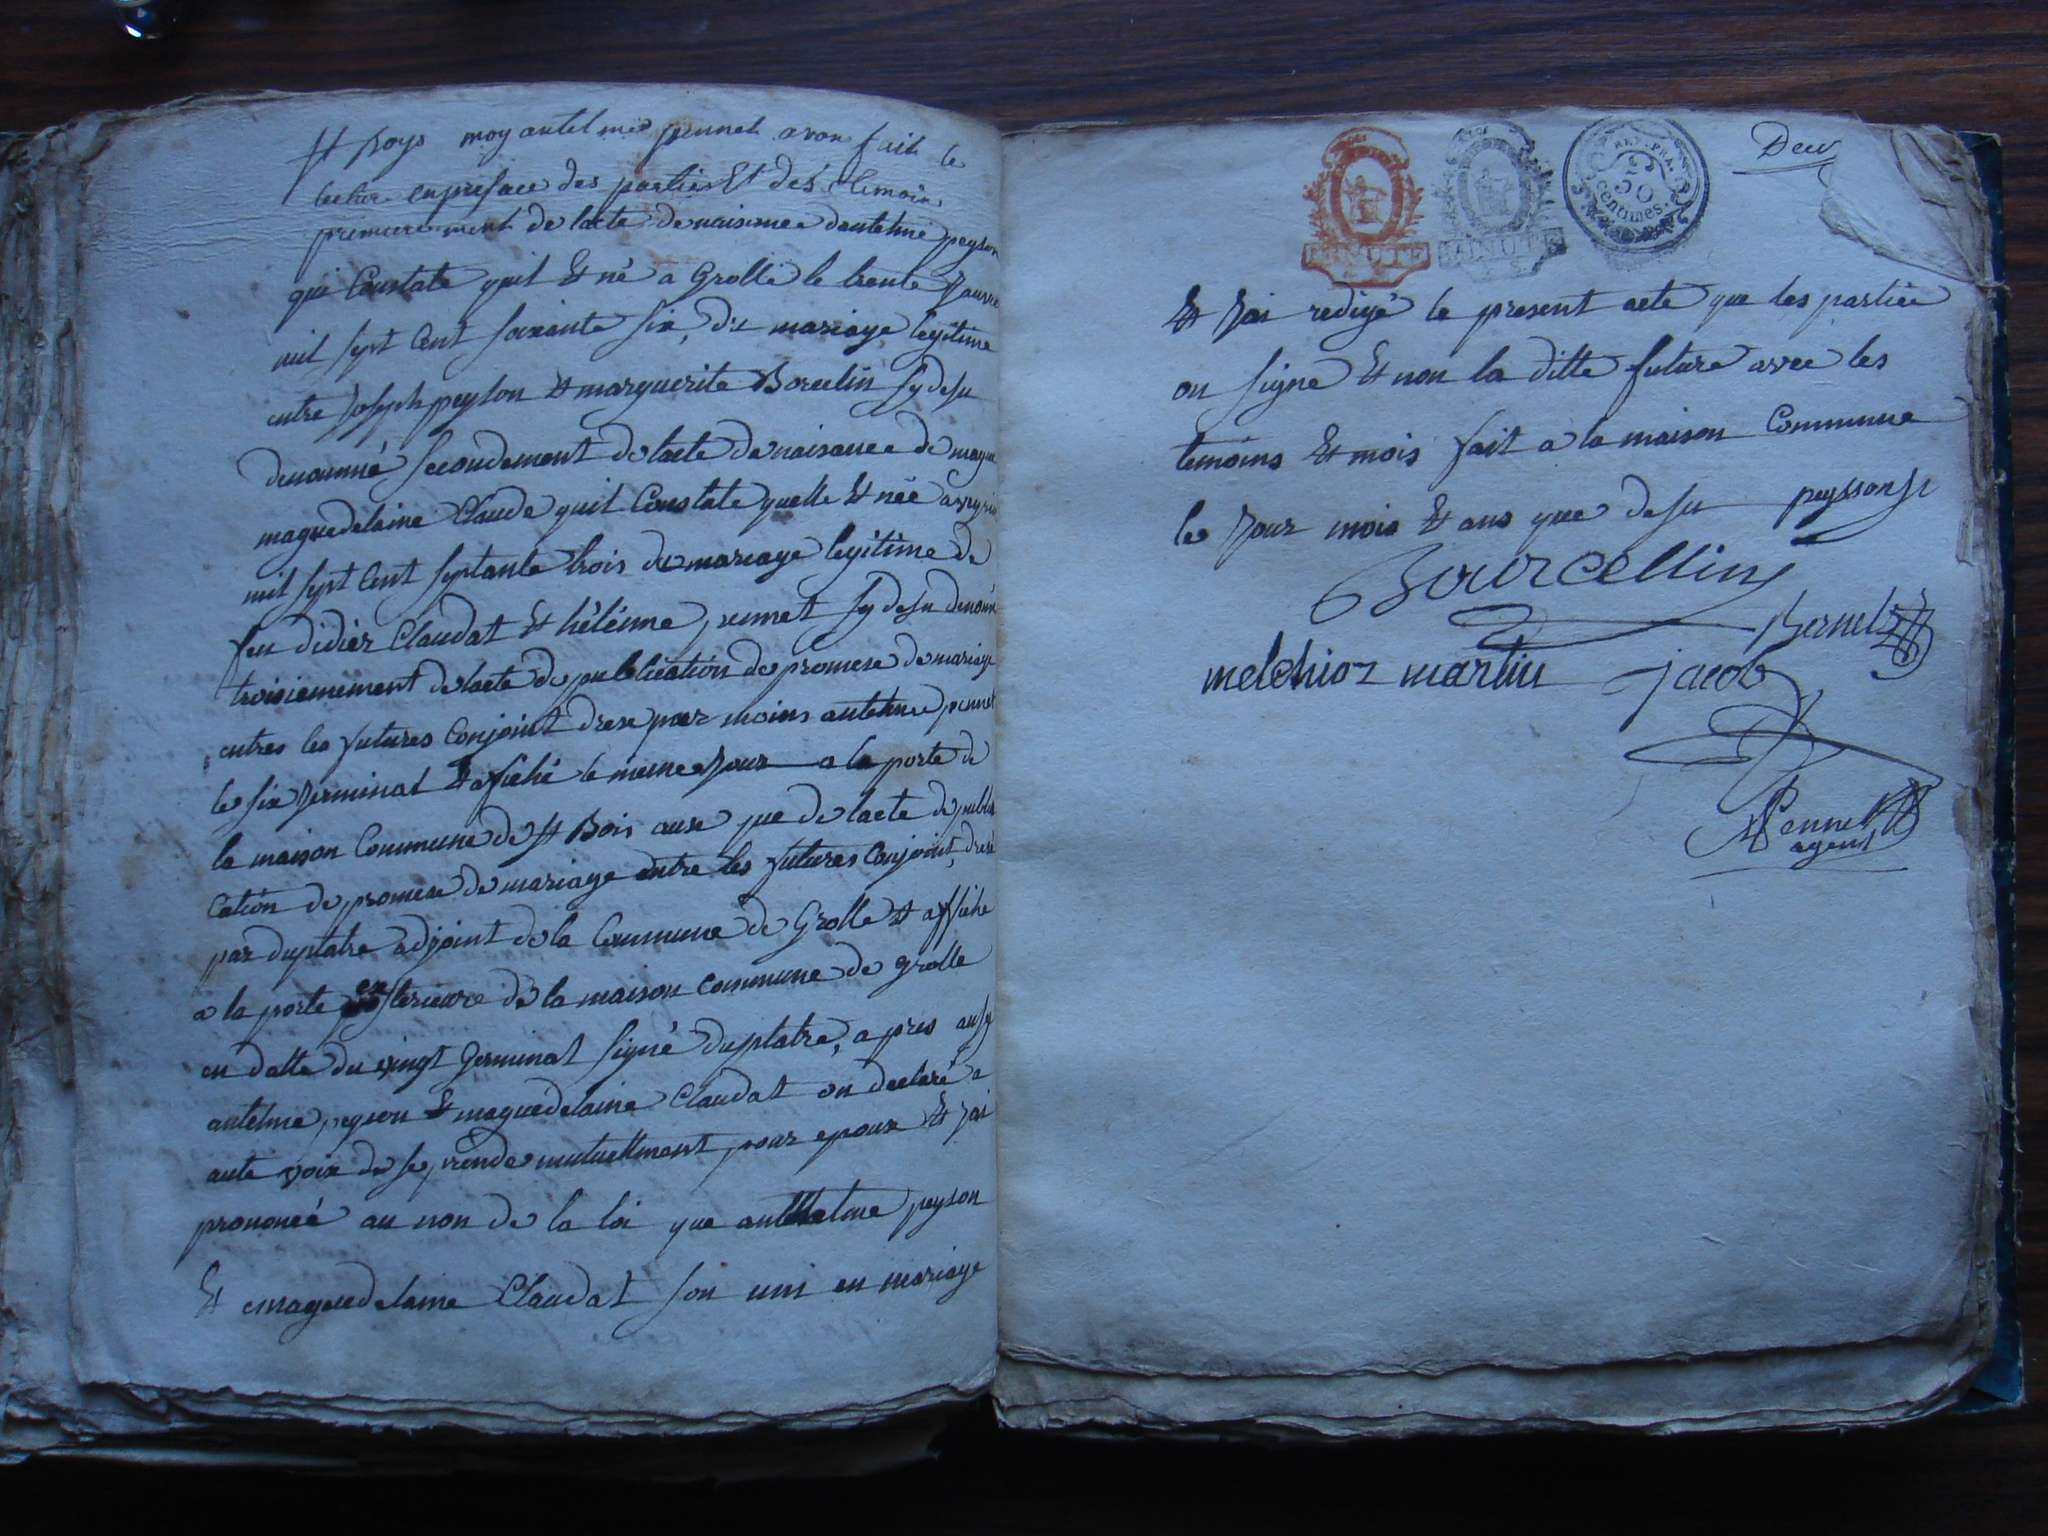 St Boys moy antelme pennet avon fait le
lecture en preface des parties Et des temoins
premierement de lacte de naisance dantelme peyson
qui Constate quil Et né a Grolle le trente Janvier
mil sept Cent soixante six, du mariage legitime
entre Joseph peyson Et marguerite Borcelin sy desu
denommé secondement de lacte de naisance de mague
maguedelaine Claude quil Constate quelle Et née a
mil sept Cent septante trois du mariage legitime de
feu didier Claudat Et hélénne pennet sy desu denomé
troisiemement de lacte de publication de promese de mariage
entres les futures Conjoint drese par moins antelme pennet
le six Jerminal Et afiché le meme Jour a la porte de
la maison Commune de St Bois ause que de lacte de publi
cation de promese de mariage entre les futures Conjoint, drese
par duplatre adjoint de la Commune de Grolle Et affiché
a la porte exsterieure de la maison Commune de grolle
en datte du vingt Germinal signé duplatre, apres ausy
antelme peyson Et maguedelaine Claudat on declaré a
aute voix de se prende mutuellment pour epoux Et Jai
prononcé au non de la loi que anthelme peyson
Et maguedelaine Claudat son uni en mariage
Deux
MINUTE
MINUTE
REP. FRA.
50
centimes.
Et Jai redigé le present acte que les partiée
on signé Et non la ditte future avec les
temoins Et mois fait a la maison Commune
le Jour mois Et ans que desu peysson
Bourcellin
Bernet
melchior martin jacob
Pennet
agent